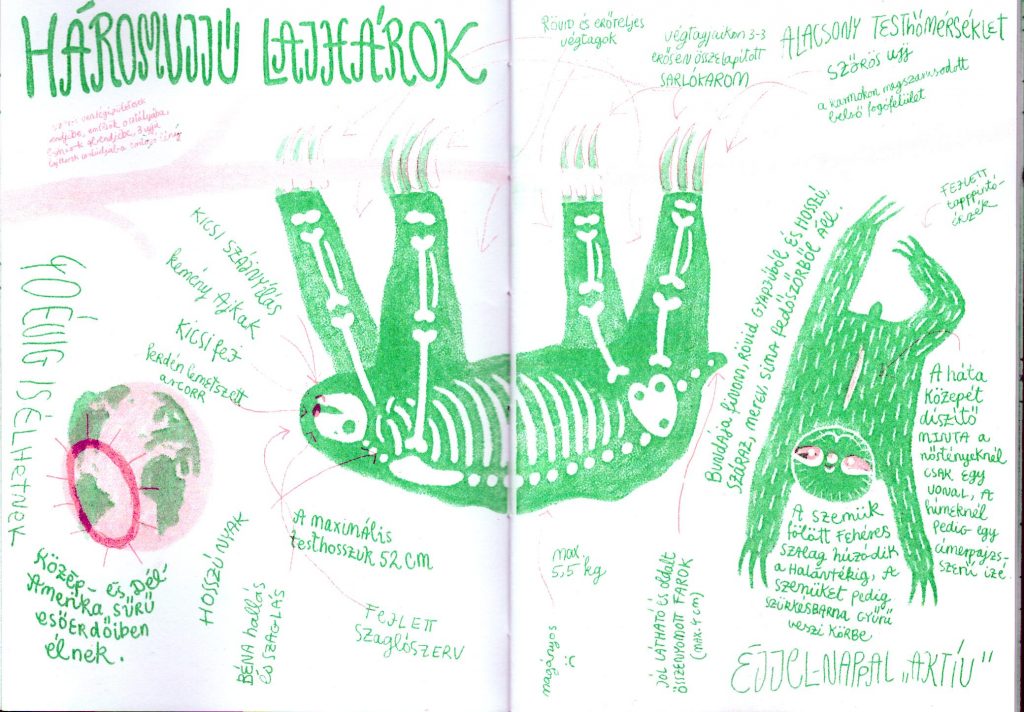 HÁROMUJJÚ LAJHÁROK
RÖVID ÉS ERŐTELJES
VÉGTAGOK
VÉGTAGJAIKON 3-3
ERŐSEN ÖSSZELAPÍTOTT
SARLÓKAROM
ALACSONY TESTHŐMÉRSÉKLET
SZŐRÖS UJJ
a karmokon megszarusodott
belső fogófelület
FEJLETT
ÉRZÉK
KICSI SZÁJNYÍLÁS
kemény AJKAK
KICSI FEJ
ferdén lemetszett
arcorr
40 ÉVIG IS ÉLHETNEK
KÖZÉP- ÉS DÉL-
AMERIKA SŰRŰ
ESŐERDŐIBEN
élnek.
HOSSZÚ NYAK
BÉNA hallás
és SZAGLÁS
A maximális
testhosszuk 52 cm
FEJLETT
SZAGLÓSZERV
max
5,5 kg
magányos
:C
JÓL LÁTHATÓ ÉS OLDALT
ÖSSZENYOMOTT FAROK
(MAX. 7 cm)
Bundája finom, RÖVID GYAPJÚBÓL ÉS HOSSZÚ,
SZÁRAZ, MEREV, sima FEDŐSZŐRBŐL ÁLL.
A háta
KÖZEPÉT
díszítő
MINTA a
nőstényeknél
CSAK EGY
VONAL, A
hímeknél
PEDIG egy
címerpajzs-
szerű izé.
A szemük
fölött Fehéres
SZALAG húzódik
a HALántékig, A
szemüket pedig
szürkésbarna GYŰRŰ
veszi körbe
ÉJJEL-NAPPAL „AKTÍV”